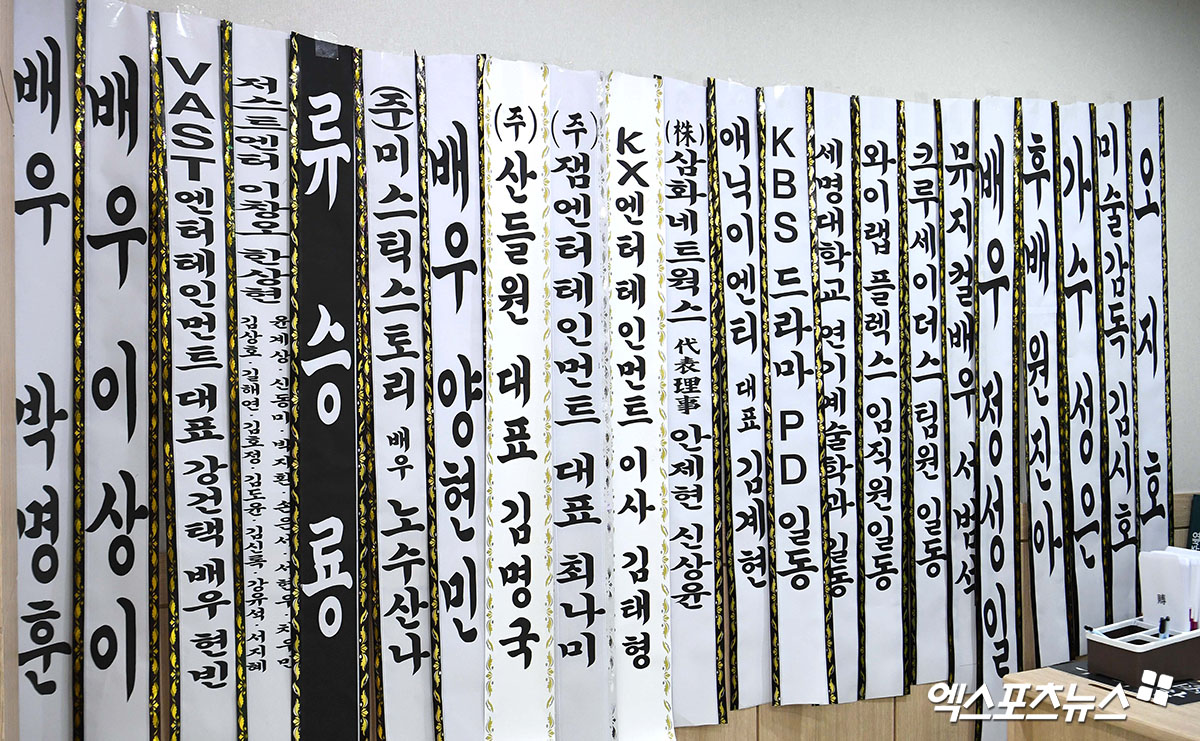 배우 박명훈
배우 이상이
VAST엔터테인먼트 대표 강건택 배우 현빈
저스트엔터 이창오 한상현
윤계상·신동미·박지환·손은서·서현우·차우민
김상호·김해연·김호정·김도윤·김신록·강유석·서지혜
류승룡
(주)미스틱스토리 배우 노수산나
배우 양현민
(주)산들원 대표 김명국
(주)잼엔터테인먼트 대표 최나미
KX엔터테인먼트 이사 김태형
(株)삼화네트웍스 代表理事 안제현 신상윤
애닉이엔티 대표 김계현
KBS 드라마 PD 일동
세명대학교 연기예술학과 일동
와이랩 플렉스 임직원일동
크루세이더스 팀원 일동
뮤지컬배우 서범석
배우 정성일
후배 원진아
가수 성은
미술감독 김시호
오지호
엑스포츠뉴스